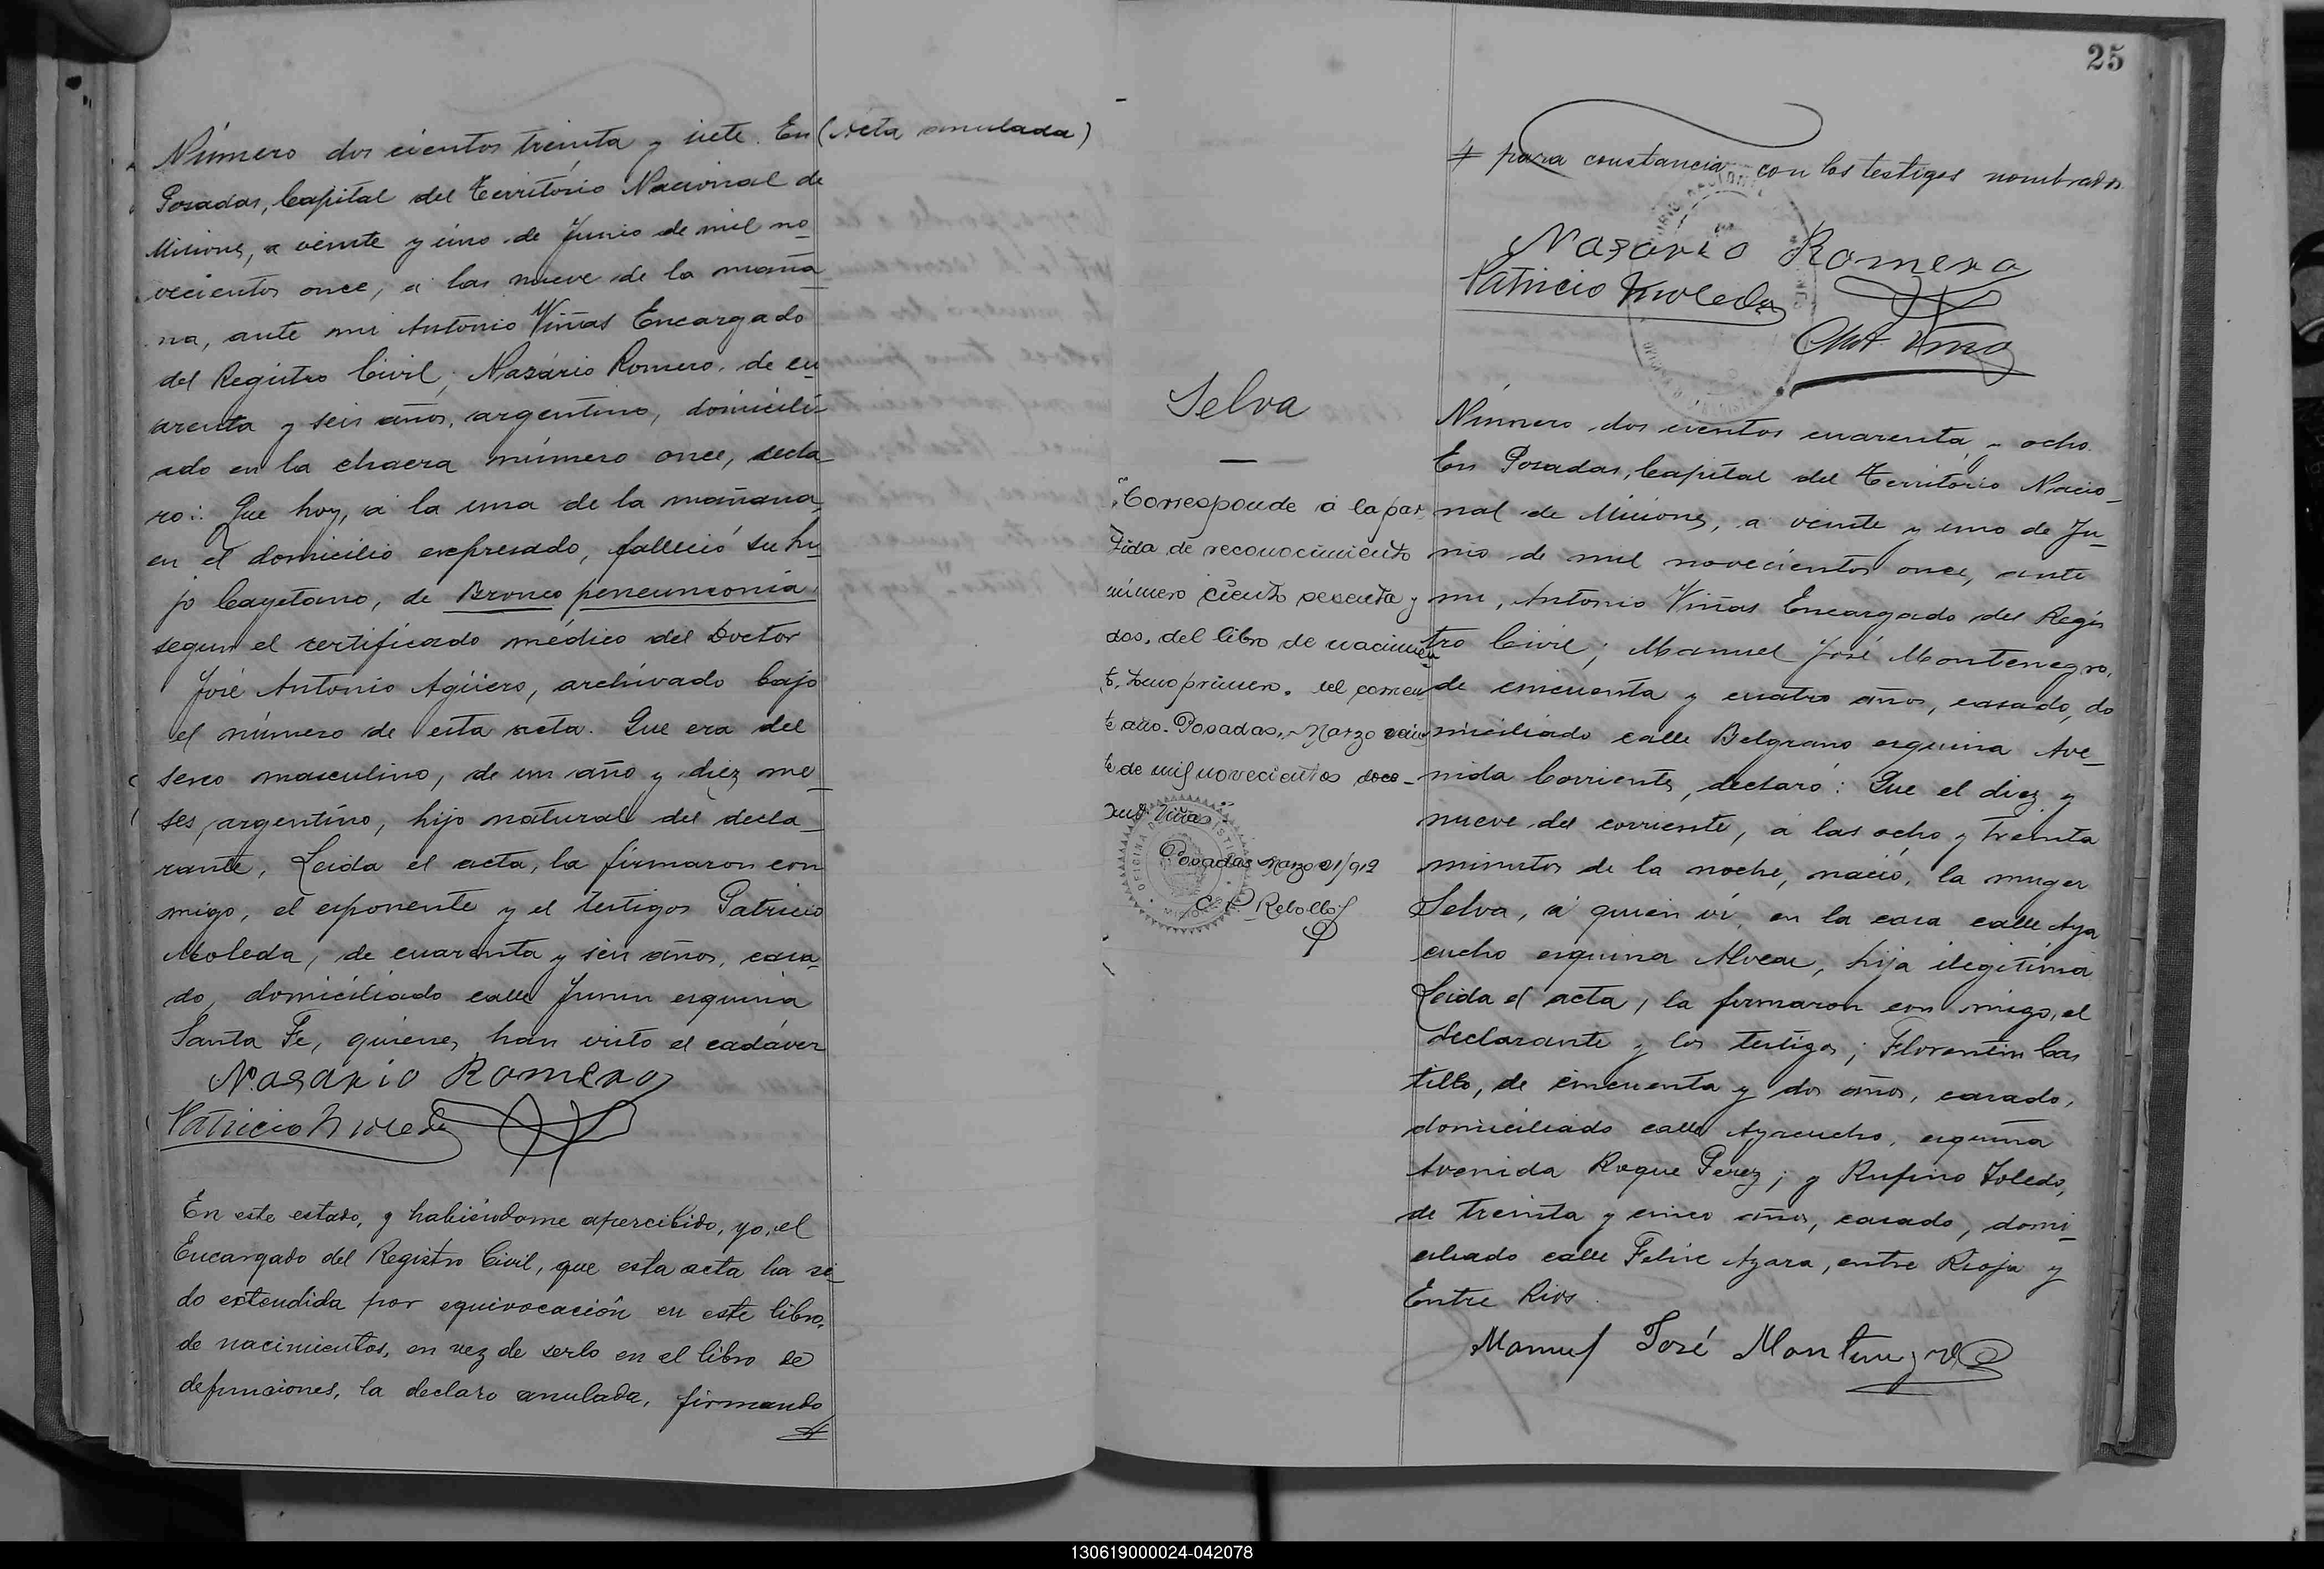 Número dos cientos treinta y siete. En (Acta anulada)
Posadas, Capital del Territorio Nacional de
Misiones, a veinte y uno de Junio de mil no_
vecientos once, a las nueve de la maña_
na, ante mi Antonio Viñas Encargado
del Registro Civil; Nazário Romero, de cu_
arenta y seis años, argentino, domicili_
ado en la chacra número once, decla_
ro: Que hoy, a la una de la mañana,
en el domicilio expresado, falleció su hi_
jo Cayetano, de Bronco peneumconia
segun el certificado médico del Doctor
José Antonio Agüero, archivado bajo
el número de esta acta. Que era del
sexo masculino, de un año y diez me_
ses, argentino, hijo natural del decla_
rante, Leida el acta, la firmaron con
migo, el exponente y el testigos Patricio
Moleda, de cuarenta y seis años, casa_
do, domiciliado calle Junin esquina
Santa Fe, quienes han visto el cadáver
Nasario Romero
Patricio Moleda
En este estado, y habiéndome apercibido, yo, el
Encargado del Registro Civil, que esta acta ha si_
do extendida por equivocación en este libro,
de nacimientos, en vez de serlo en el libro de
defunciones, la declaro anulada, firmando
#
25
# para constancia con los testigos nombrados.
Nasario Romero
Patricio Moleda
Ant. Viñas
Selva
"Corresponde á la par_
tida de reconocimiento
número ciento sesenta y
dos, del libro de nacimien_
to, tomo primero, del corrien_
te año. Posadas, Marzo vein_
te de mil novecientos doce_
Ant. Viñas
Posadas Marzo 21/912
C P Rebollo
OFICINA DE
MISIONES
Número dos cientos cuarenta y ocho.
En Posadas, Capital del Territorio Nacio_
nal de Misiones, a veinte y uno de Ju_
nio de mil novecientos once, ante
mi, Antonio Viñas Encargado del Regis
tro Civil; Manuel José Montenegro,
de cincuenta y cuatro años, casado, do
miciliado calle Belgrano esquina Ave_
nida Corrientes, declaró: Que el diez y
nueve del corriente, a las ocho y treinta
minutos de la noche, nació, la muger
Selva, a quien vi, en la casa calle Aya
cucho esquina Alvear, hija ilegitima
Leida el acta, la firmaron con migo, el
declarante y los testigos; Florentin Cas
tillo, de cincuenta y dos años, casado,
domiciliado calle Ayacucho, esquina
Avenida Roque Perez; y Rufino Toledo,
de treinta y cinco años, casado, domi_
ciliado calle Felix Azara, entre Rioja y
Entre Rios.
Manuel José Montenegro
130619000024-042078